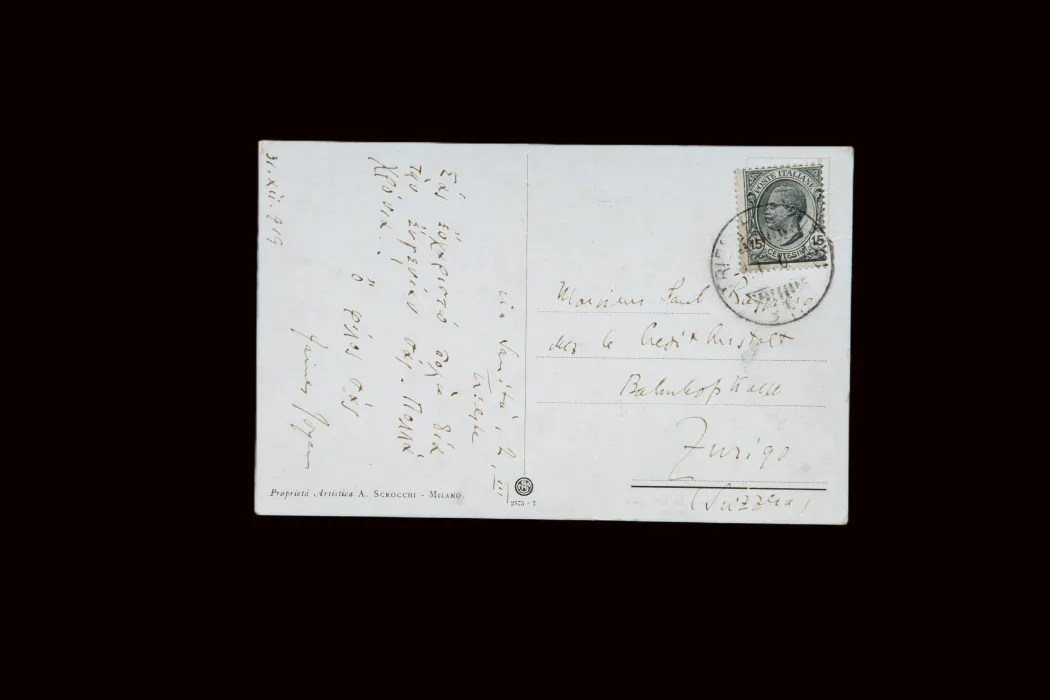 via Sanità, 2, III
Trieste
Σᾶς εὐχαριστῶ πολὺ διὰ
τὴν εὐγενίαν σας. Πολλὰ
Χρόνια.
ὁ φίλος σας
James Joyce
31.XII.919
Monsieur Paul Ruggiero
chez le Credit Anstalt
Bahnhofstrasse
Zurigo
(Svizzera)
POSTE ITALIANE
15 15
CENTESIMI
TRIESTE
Proprietà Artistica A. SCROCCHI - MILANO.
2575 - 7